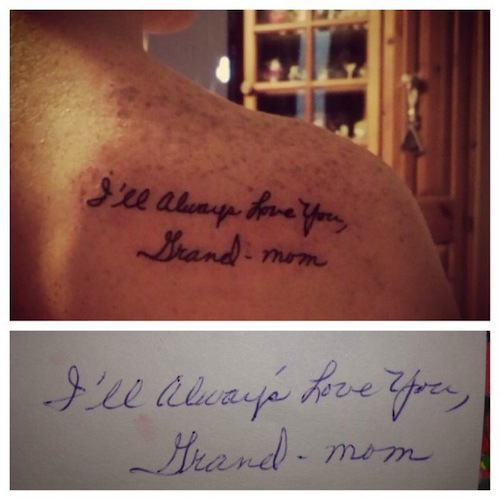 I'll Always Love You,
Grand-mom
I'll Always Love You,
Grand-mom